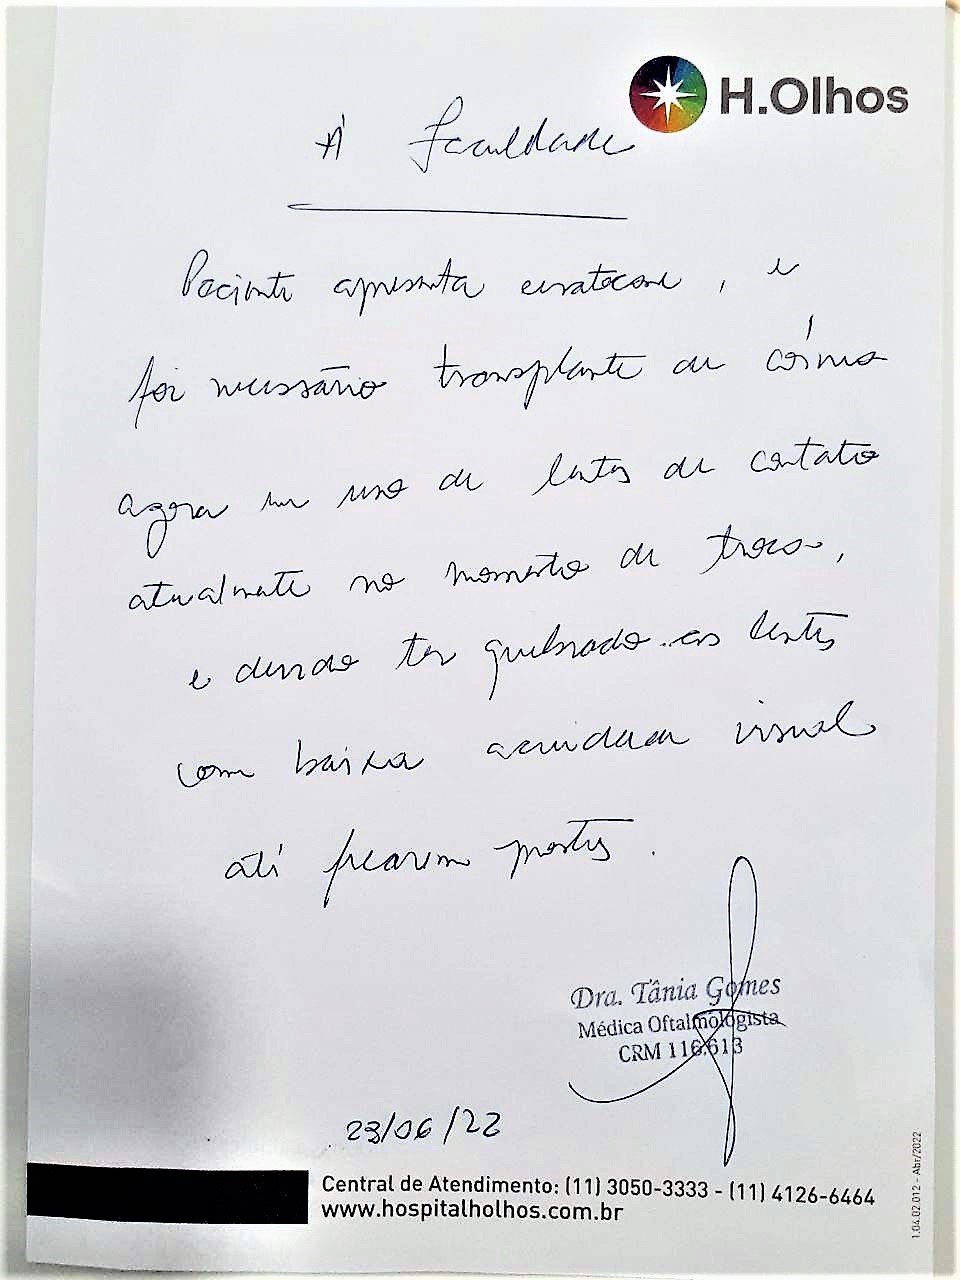 H.Olhos
À Faculdade
Paciente apresenta ceratocone, e
foi necessário transplante de córnea
agora em uso de lentes de contato
atualmente no momento de troca,
e devido ter quebrado as lentes
com baixa acuidade visual
até ficarem prontas.
Dra. Tânia Gomes
Médica Oftalmologista
CRM 116.613
23/06/22
Central de Atendimento: (11) 3050-3333 - (11) 4126-6464
www.hospitalholhos.com.br
1.04.02.012 - Abr/2022